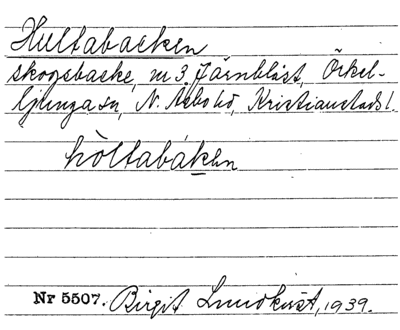 Hultabacken
skogsbacke, m 3 Järnbläst, Örkel-
ljunga sn, N. Åsbo hd, Kristianstads l.
hòltabákɘn
Nr 5507. Birgit Lundkvist, 1939.